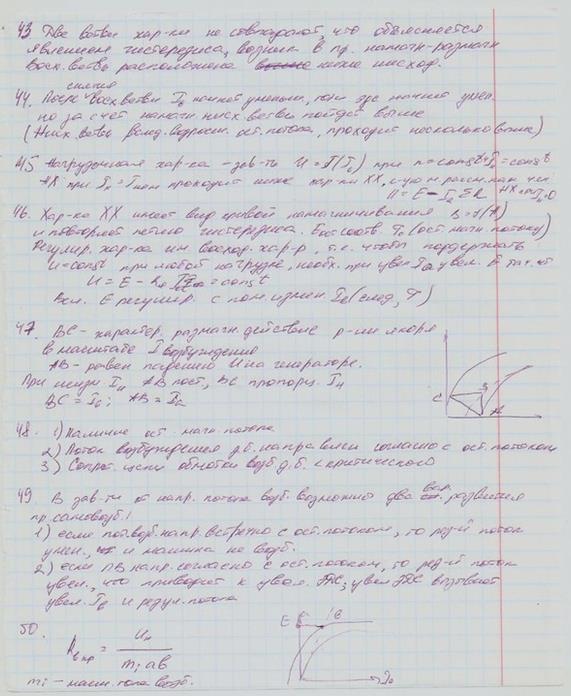 43 Две ветви хар-ки не совпадают, что объясняется
явлением гистерезиса, возник в пр. намагн-размагн
Восх. ветвь расположена ниже нисход.
44. После восх. ветви
но за счёт намагн. нисх. ветвь пойдёт выше
(Нисх. ветвь вслед. возросш. ост. потока, проходит несколько выше)
45 Нагрузочная хар-ка - зав-ть U=f(Iв) при n=const, I=const
НХ при Iн=Iном проходит ниже хар-ки ХХ,
U=E-Iя ΣR НХ при I=0
46. Хар-ка ХХ имеет вид кривой намагничивания B=f(H)
и повторяет петлю гистерезиса. Еост соотв. (ост. магн. потоку)
Регулир. хар-ка им. восход. хар-р, т.е. чтобы поддержать
U=const при любой нагрузке, необх. при увел Iя увел. E так как
U = E - = const
E регулир. с пом. измен. Iв (след, Ф)
47. BC - характер. размагн. действие р-ии якоря
в масштабе I возбуждения
AB - равен падению U на генераторе.
При измен. Iн AB пост, BC пропорц. Iн
BC = Iв; AB =
C B A
48. 1) Наличие ост. магн. потока
2) Поток возбуждения д.б. направлен согласно с ост. потоком
3) Сопрот. цепи обмотки возб. д.б. < критического
49 В зав-ти от напр. потока возб. возможно два вар. развития
пр. самовозб.!
1) если пот. возб. напр. встречно с ост. потоком, то рез-й поток
умен., и машина не возб.
2) если ПВ напр. согласно с ост. потоком, то рез-й поток
увел., что приводит к увел. ЭДС, увел ЭДС вызывает
увел. Iв и результ. потока
50. Rв кр = Uн / mi ab
E B Iв
mi - масш. тока возб.